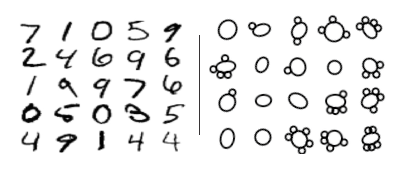 7 1 0 5 9
2 4 6 9 6
1 9 9 7 6
0 5 0 3 5
4 9 1 4 4